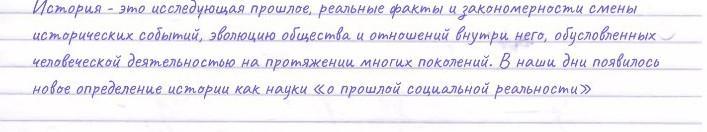 История - это исследующая прошлое, реальные факты и закономерности смены
исторических событий, эволюцию общества и отношений внутри него, обусловленных
человеческой деятельностью на протяжении многих поколений. В наши дни появилось
новое определение истории как науки «о прошлой социальной реальности»